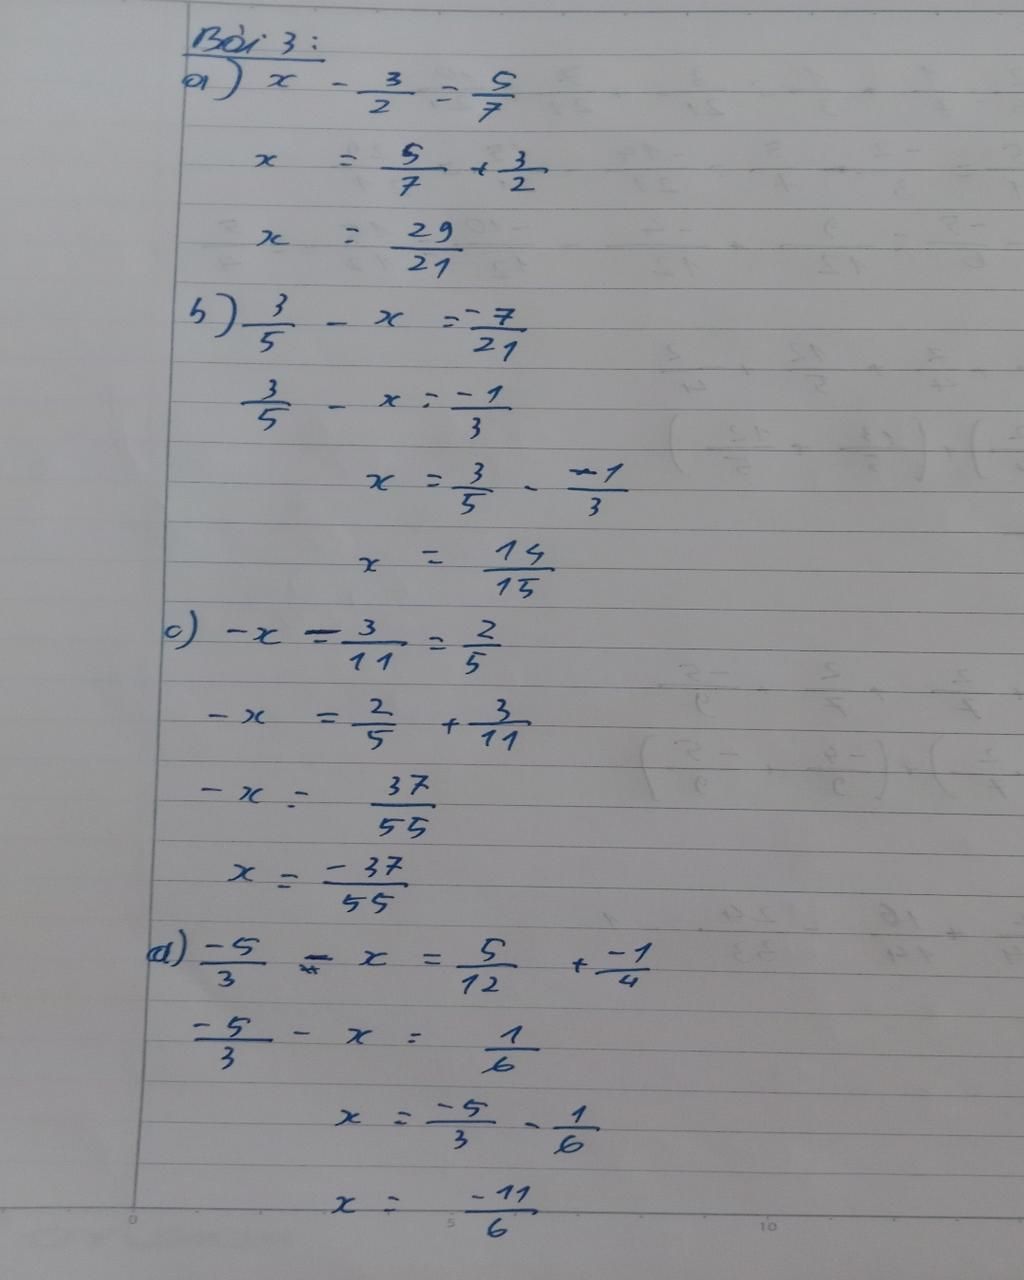 Bài 3:
a) x - 3/2 = 5/7
x = 5/7 + 3/2
x = 29/21
b) 3/5 - x = -7/21
3/5 - x = -1/3
x = 3/5 - -1/3
x = 14/15
c) -x - 3/11 = 2/5
-x = 2/5 + 3/11
-x = 37/55
x = -37/55
d) -5/3 - x = 5/12 + -1/4
-5/3 - x = 1/6
x = -5/3 - 1/6
x = -11/6
0 5 10